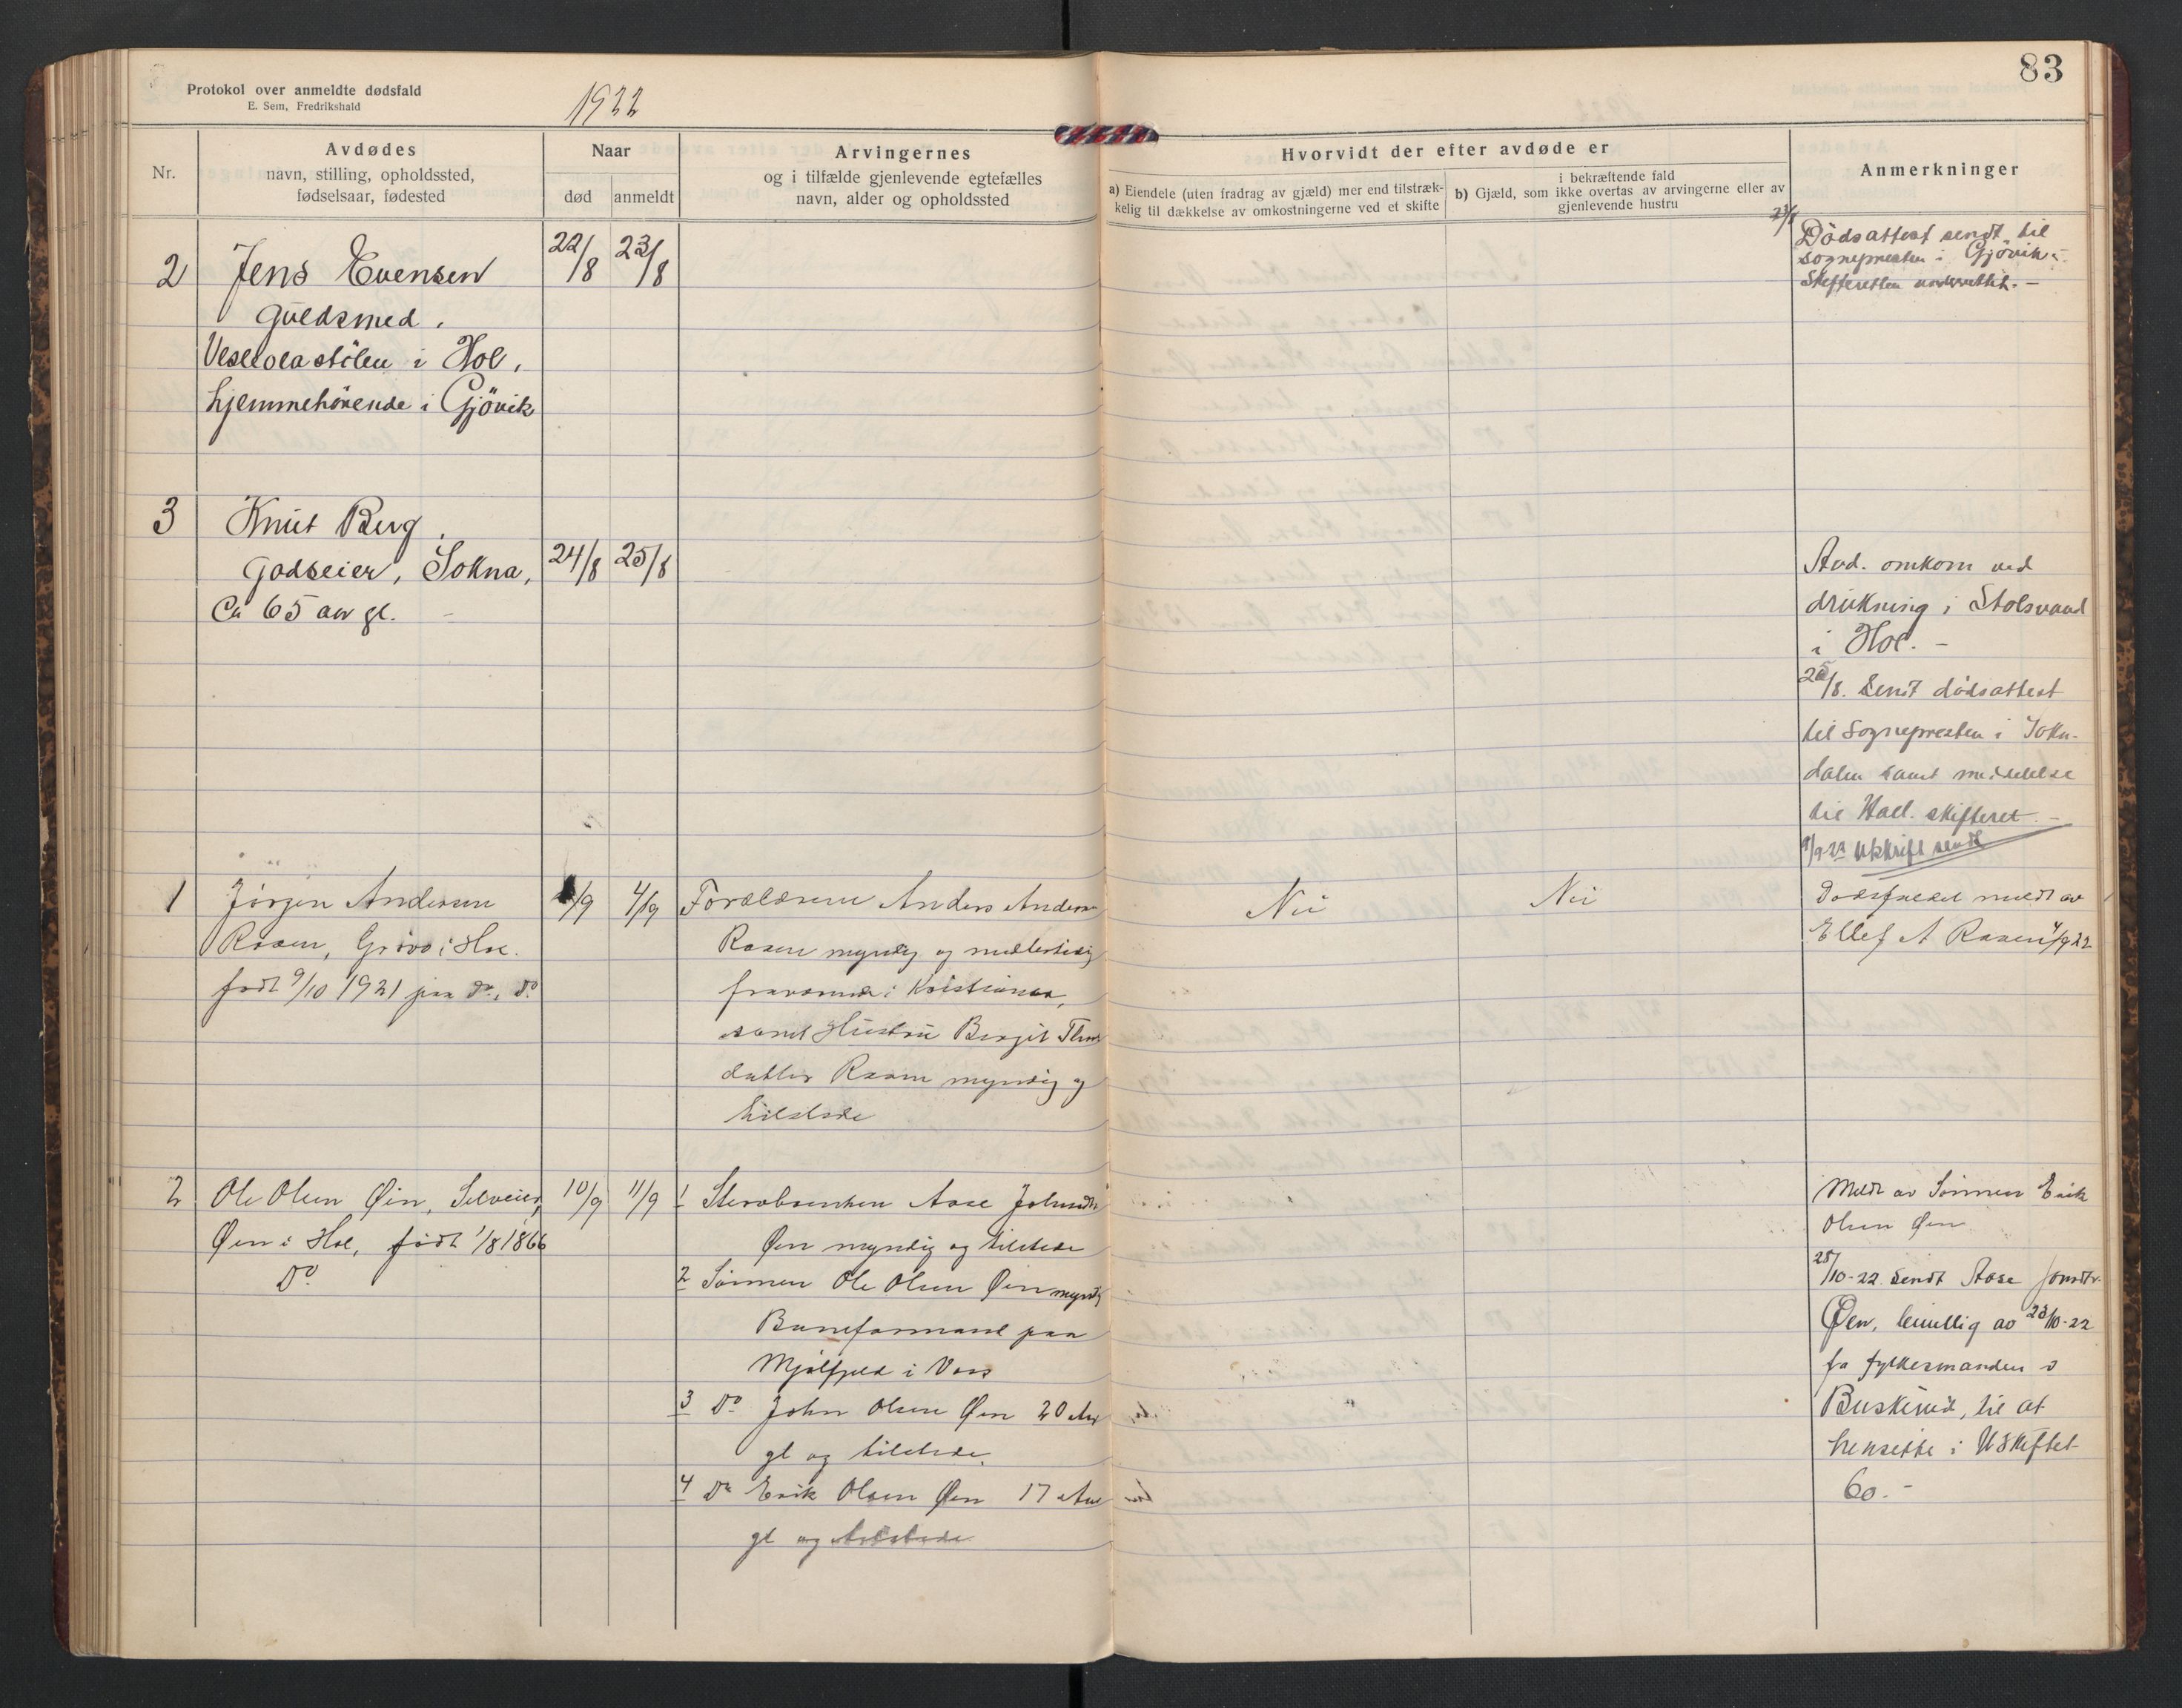 Protokol over anmeldte dødsfald
E. Sem, Fredrikshald
1922
83
Nr.
Avdødes
navn, stilling, opholdssted,
fødselsaar, fødested
Naar
død
anmeldt
Arvingernes
og i tilfælde gjenlevende egtefælles
navn, alder og opholdssted
Hvorvidt der efter avdøde er
a) Eiendele (uten fradrag av gjæld) mer end tilstræk-
kelig til dækkelse av omkostningerne ved et skifte
i bekræftende fald
b) Gjæld, som ikke overtas av arvingerne eller av
gjenlevende hustru
Anmerkninger
2
Jens Evensen
Guldsmed,
Vesleolastölen i Hol,
hjemmehörende i Gjövik
22/8
23/8
23/8
Dödsattest sendt til
sognepresten i Gjövik.
Skifteretten underrettet. -
3
Knut Berg,
Godseier, Sokna,
Ca 65 aar gl. -
24/8
25/8
Avd. omkom ved
drukning i Stolsvand
i Hol. -
25/8. Sendt dödsattest
til Sognepresten i Sokn-
dalen samt meddelelse
til Hall. skifteret. -
9/9-22 utskrift sendt
1
Jörgen Andersen
Raaen, Grövo i Hol.
født 9/10 1921 paa do, do
/9
4/9
Forældrene Anders Anders
Raaen myndig og midlertidig
fraværende i Kristiania,
samt Hustru Birgit
datter Raaen myndig og
tilstede
Nei
Nei
Dödsfaldet meldt av
Ellef A Raaen 4/9 22
2
Ole Olsen Øin, Selveier,
Øen i Hol, født 1/8 1866
Do
10/9
11/9
1 Stervboenken Aase Johnsdtr
Øen myndig og tilstede
2 Sönnen Ole Olsen Øen myndig
Baneformand paa
Mjölfjeld i Voss
3 Do John Olsen Øen 20 Aar
gl og tilstede.
4 Do Erik Olsen Øen 17 Aar
gl og tilstede
Meldt av Sönnen Erik
Olsen Øen
25/10-22 Sendt Aase Jonsdtr.
Øen, bevillig av 23/10-22
fra fylkesmanden i
Buskerud, til at
hensitte i Uskiftet
Bo. -